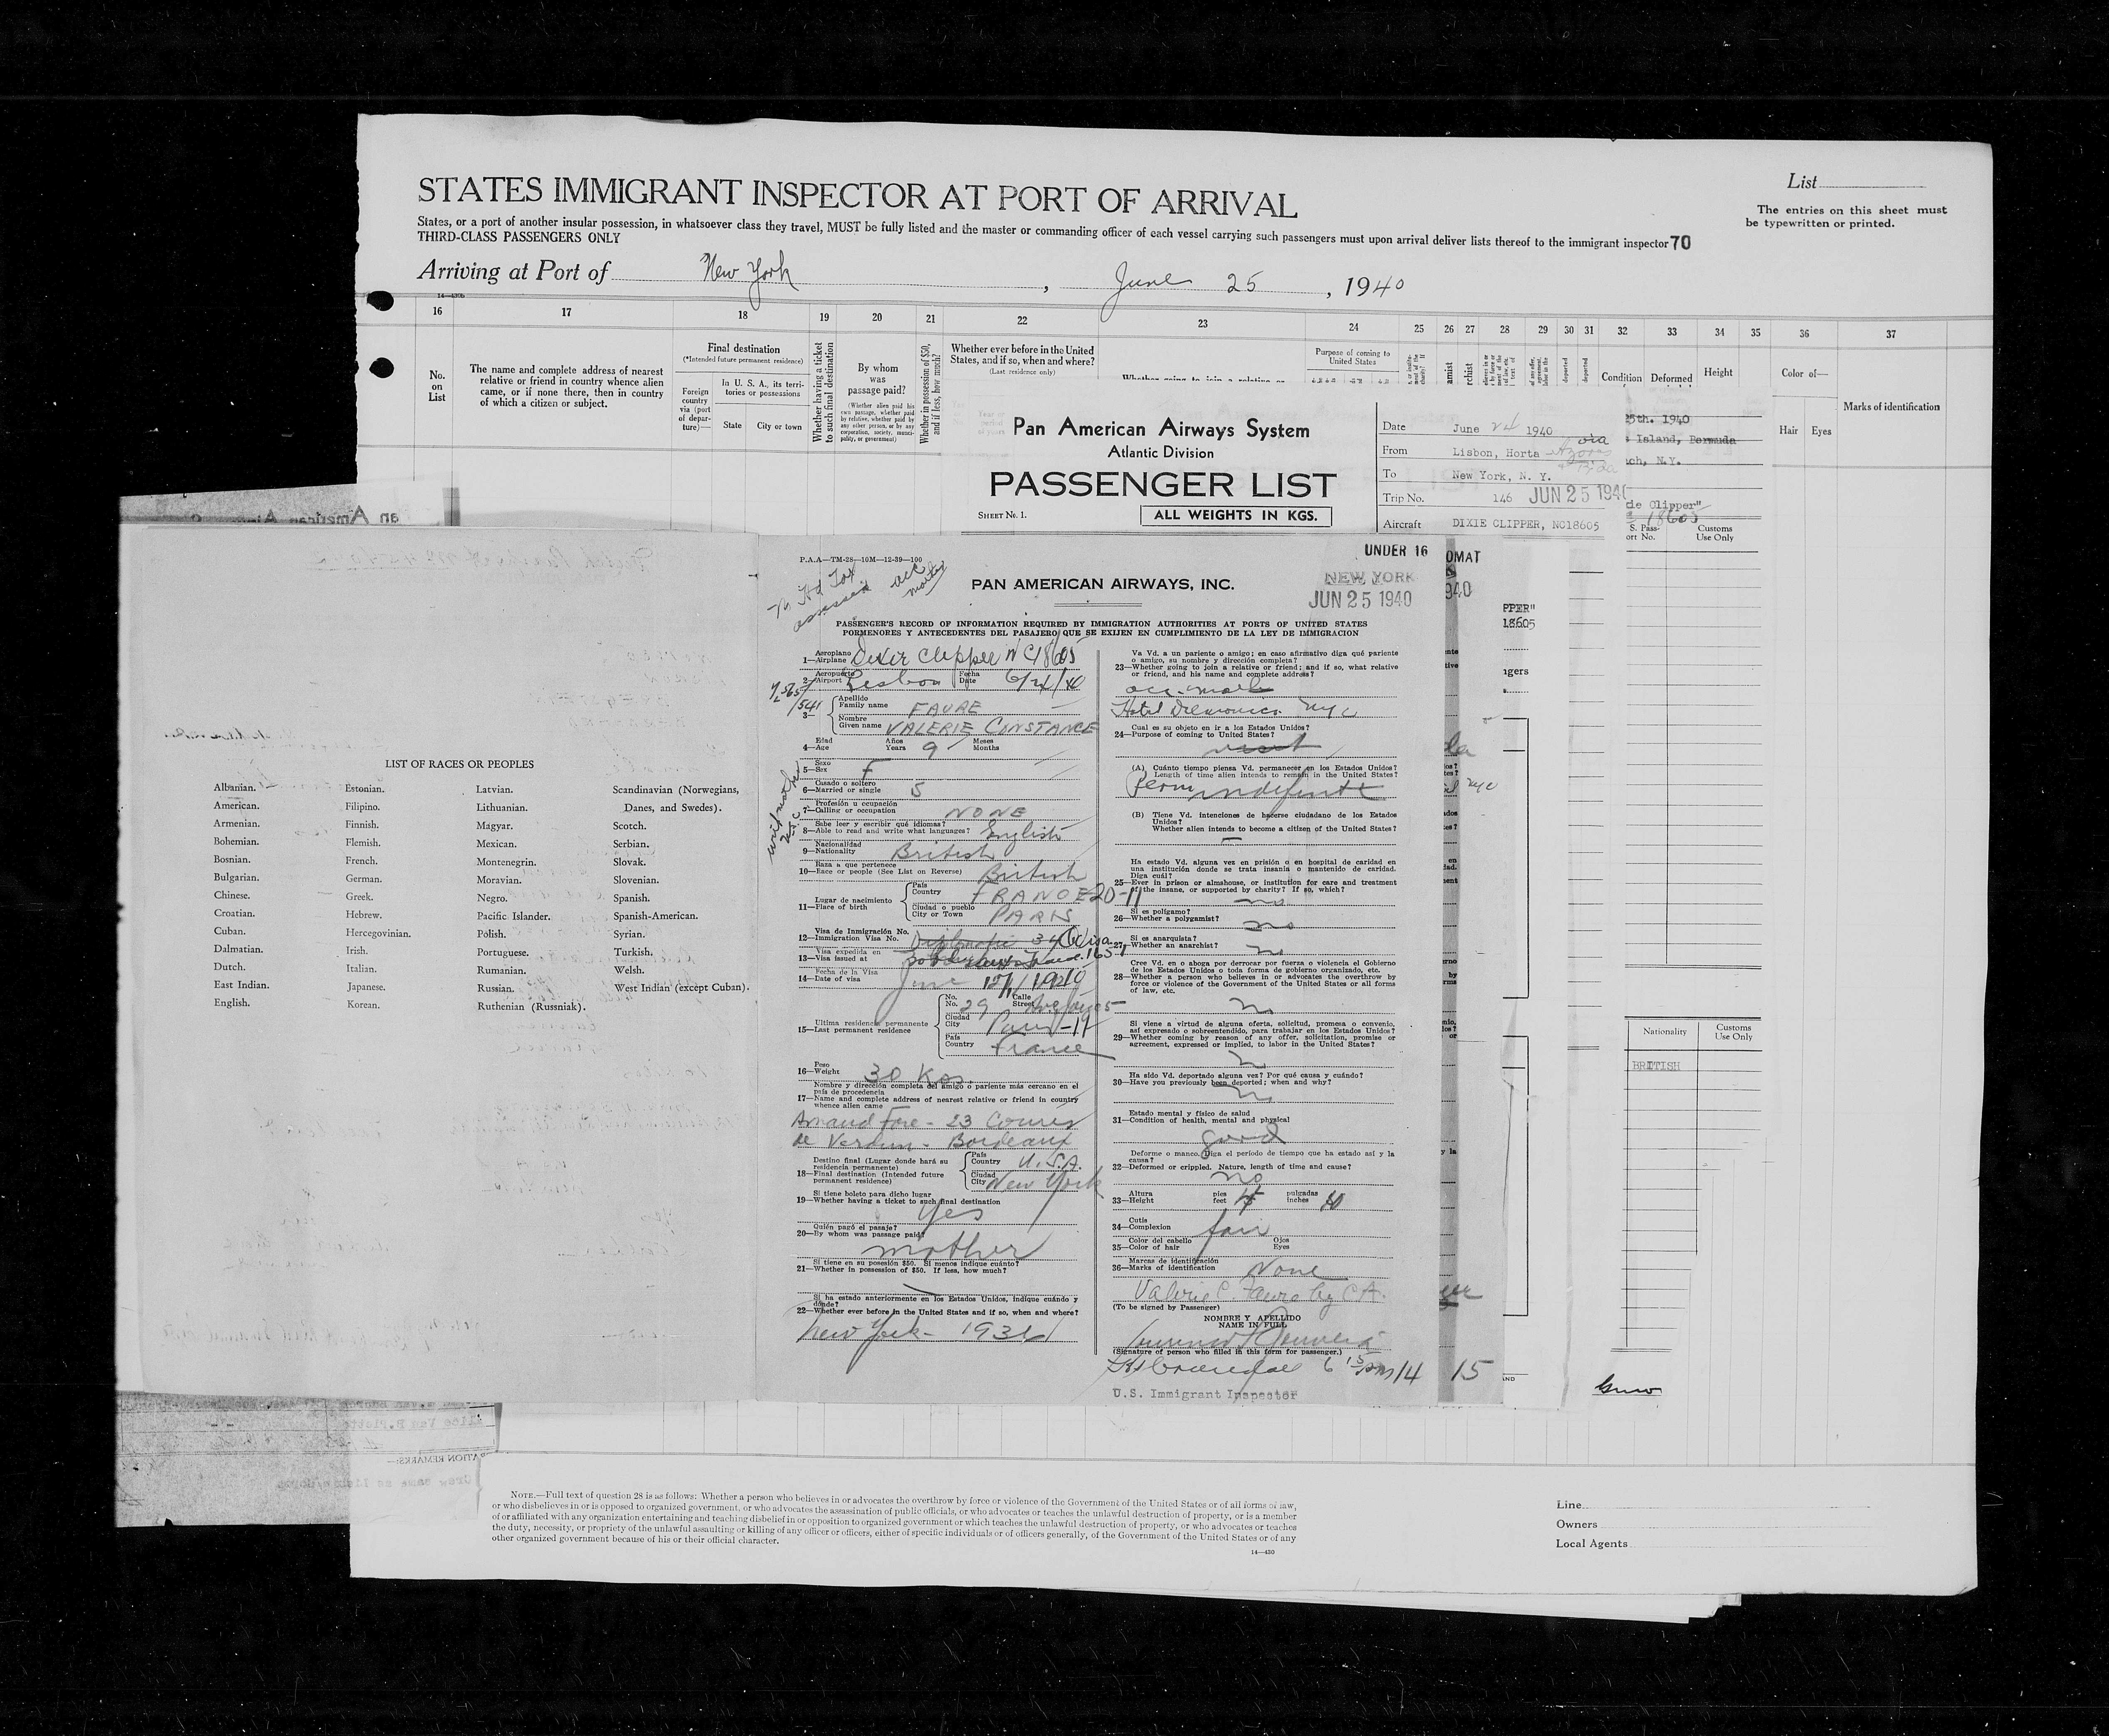 STATES IMMIGRANT INSPECTOR AT PORT OF ARRIVAL
List
The entries on this sheet must
be typewritten or printed.
States, or a port of another insular possession, in whatsoever class they travel, MUST be fully listed and the master or commanding officer of each vessel carrying such passengers must upon arrival deliver lists thereof to the immigrant inspector 70
THIRD-CLASS PASSENGERS ONLY
Arriving at Port of New York, June 25, 1940
16 17 18 19 20 21 22 23 24 25 26 27 28 29 30 31 32 33 34 35 36 37
No.
on
List
The name and complete address of nearest
relative or friend in country whence alien
came, or if none there, then in country
of which a citizen or subject.
Final destination
(*Intended future permanent residence)
Foreign
country
via (port
of depar-
ture)—
In U. S. A., its terri-
tories or possessions
State City or town
Whether having a ticket
to such final destination
By whom
was
passage paid?
(Whether alien paid his
own passage, whether paid
by relative, whether paid
by any other person, or by any
corporation, society, munici-
pality, or government)
Whether in possession of $50,
and if less, how much?
Whether ever before in the United
States, and if so, when and where?
(Last residence only)
Purpose of coming to
United States
Condition Deformed Height
Color of—
Hair Eyes
Marks of identification
Pan American Airways System
Atlantic Division
PASSENGER LIST
SHEET No. 1.
ALL WEIGHTS IN KGS.
Date June 24 1940
From Lisbon, Horta
To New York, N. Y.
Trip No. 146 JUN 25 1940
Aircraft DIXIE CLIPPER, NC18605
25th. 1940
Island, Bermuda
ch, N.Y.
Clipper"
18605
S. Pass-
ort No.
Customs
Use Only
PPER"
18605
ngers
Nationality
Customs
Use Only
BRITISH
LIST OF RACES OR PEOPLES
Albanian. Estonian. Latvian. Scandinavian (Norwegians,
American. Filipino. Lithuanian. Danes, and Swedes).
Armenian. Finnish. Magyar. Scotch.
Bohemian. Flemish. Mexican. Serbian.
Bosnian. French. Montenegrin. Slovak.
Bulgarian. German. Moravian. Slovenian.
Chinese. Greek. Negro. Spanish.
Croatian. Hebrew. Pacific Islander. Spanish-American.
Cuban. Hercegovinian. Polish. Syrian.
Dalmatian. Irish. Portuguese. Turkish.
Dutch. Italian. Rumanian. Welsh.
East Indian. Japanese. Russian. West Indian (except Cuban).
English. Korean. Ruthenian (Russniak).
P.A.A—TM-28—10M—12-39—100
UNDER 16
OMAT
940
PAN AMERICAN AIRWAYS, INC.
NEW YORK
JUN 25 1940
PASSENGER'S RECORD OF INFORMATION REQUIRED BY IMMIGRATION AUTHORITIES AT PORTS OF UNITED STATES
PORMENORES Y ANTECEDENTES DEL PASAJERO QUE SE EXIJEN EN CUMPLIMIENTO DE LA LEY DE IMMIGRACION
Aeroplano
1—Airplane Dixie Clipper NC18605
Aeropuerto Fecha
2—Airport Lisbon Date 6/24/40
Apellido
Family name FAVRE
3—
Nombre
Given name VALERIE CONSTANCE
Edad Años Meses
4—Age Years 9 Months
Sexo
5—Sex F
Casado o soltero
6—Married or single S
Profesión u ocupación
7—Calling or occupation NONE
Sabe leer y escribir qué idiomas?
8—Able to read and write what languages? English
Nacionalidad
9—Nationality British
Raza a que pertenece
10—Race or people (See List on Reverse) British
Lugar de nacimiento
11—Place of birth
País
Country FRANCE
Ciudad o pueblo
City or Town PARIS
Visa de Inmigración No.
12—Immigration Visa No. Diplomatic
Visa expedida en
13—Visa issued at Bordeaux
Fecha de la Visa
14—Date of visa June 17/1940
Ultima residencia permanente
15—Last permanent residence
No. Calle
No. 29 Street
Ciudad
City Paris-17
País
Country France
Peso
16—Weight 30 Kgs.
Nombre y dirección completa del amigo o pariente más cercano en el
país de procedencia
17—Name and complete address of nearest relative or friend in country
whence alien came
23 Cours
de Verdun - Bordeaux
Destino final (Lugar donde hará su
residencia permanente)
18—Final destination (Intended future
permanent residence)
País
Country U.S.A.
Ciudad
City New York
Si tiene boleto para dicho lugar
19—Whether having a ticket to such final destination
Yes
Quién pagó el pasaje?
20—By whom was passage paid?
mother
Si tiene en su posesión $50. Si menos indique cuánto?
21—Whether in possession of $50. If less, how much?
Si ha estado anteriormente en los Estados Unidos, indique cuándo y
dónde?
22—Whether ever before in the United States and if so, when and where?
New York - 1936
Va Vd. a un pariente o amigo; en caso afirmativo diga qué pariente
o amigo, su nombre y dirección completa?
23—Whether going to join a relative or friend; and if so, what relative
or friend, and his name and complete address?
Hotel Delmonico NYC
Cual es su objeto en ir a los Estados Unidos?
24—Purpose of coming to United States?
visit
(A) Cuánto tiempo piensa Vd. permanecer en los Estados Unidos?
Length of time alien intends to remain in the United States?
Perm indefinite
(B) Tiene Vd. intenciones de hacerse ciudadano de los Estados
Unidos?
Whether alien intends to become a citizen of the United States?
Ha estado Vd. alguna vez en prisión o en hospital de caridad en
una institución donde se trata insania o mantenido de caridad.
Diga cuál?
25—Ever in prison or almshouse, or institution for care and treatment
of the insane, or supported by charity? If so, which?
no
Si es polígamo?
26—Whether a polygamist? no
Si es anarquista?
27—Whether an anarchist? no
Cree Vd. en o aboga por derrocar por fuerza o violencia el Gobierno
de los Estados Unidos o toda forma de gobierno organizado, etc.
28—Whether a person who believes in or advocates the overthrow by
force or violence of the Government of the United States or all forms
of law, etc.
no
Si viene a virtud de alguna oferta, solicitud, promesa o convenio,
así expresado o sobreentendido, para trabajar en los Estados Unidos?
29—Whether coming by reason of any offer, solicitation, promise or
agreement, expressed or implied, to labor in the United States?
no
Ha sido Vd. deportado alguna vez? Por qué causa y cuándo?
30—Have you previously been deported; when and why?
no
Estado mental y físico de salud
31—Condition of health, mental and physical
good
Deforme o manco. Diga el período de tiempo que ha estado así y la
causa?
32—Deformed or crippled. Nature, length of time and cause?
no
Altura pies pulgadas
33—Height feet 4 inches 10
Cutis
34—Complexion fair
Color del cabello Ojos
35—Color of hair Eyes
Marcas de identificación
36—Marks of identification None
Valerie C. Favre by C.A.
(To be signed by Passenger)
NOMBRE Y APELLIDO
NAME IN FULL
(Signature of person who filled in this form for passenger.)
14 15
U.S. Immigrant Inspector
NOTE.—Full text of question 28 is as follows: Whether a person who believes in or advocates the overthrow by force or violence of the Government of the United States or of all forms of law,
or who disbelieves in or is opposed to organized government, or who advocates the assassination of public officials, or who advocates or teaches the unlawful destruction of property, or is a member
of or affiliated with any organization entertaining and teaching disbelief in or opposition to organized government or which teaches the unlawful destruction of property, or who advocates or teaches
the duty, necessity, or propriety of the unlawful assaulting or killing of any officer or officers, either of specific individuals or of officers generally, of the Government of the United States or of any
other organized government because of his or their official character.
14—430
Line
Owners
Local Agents